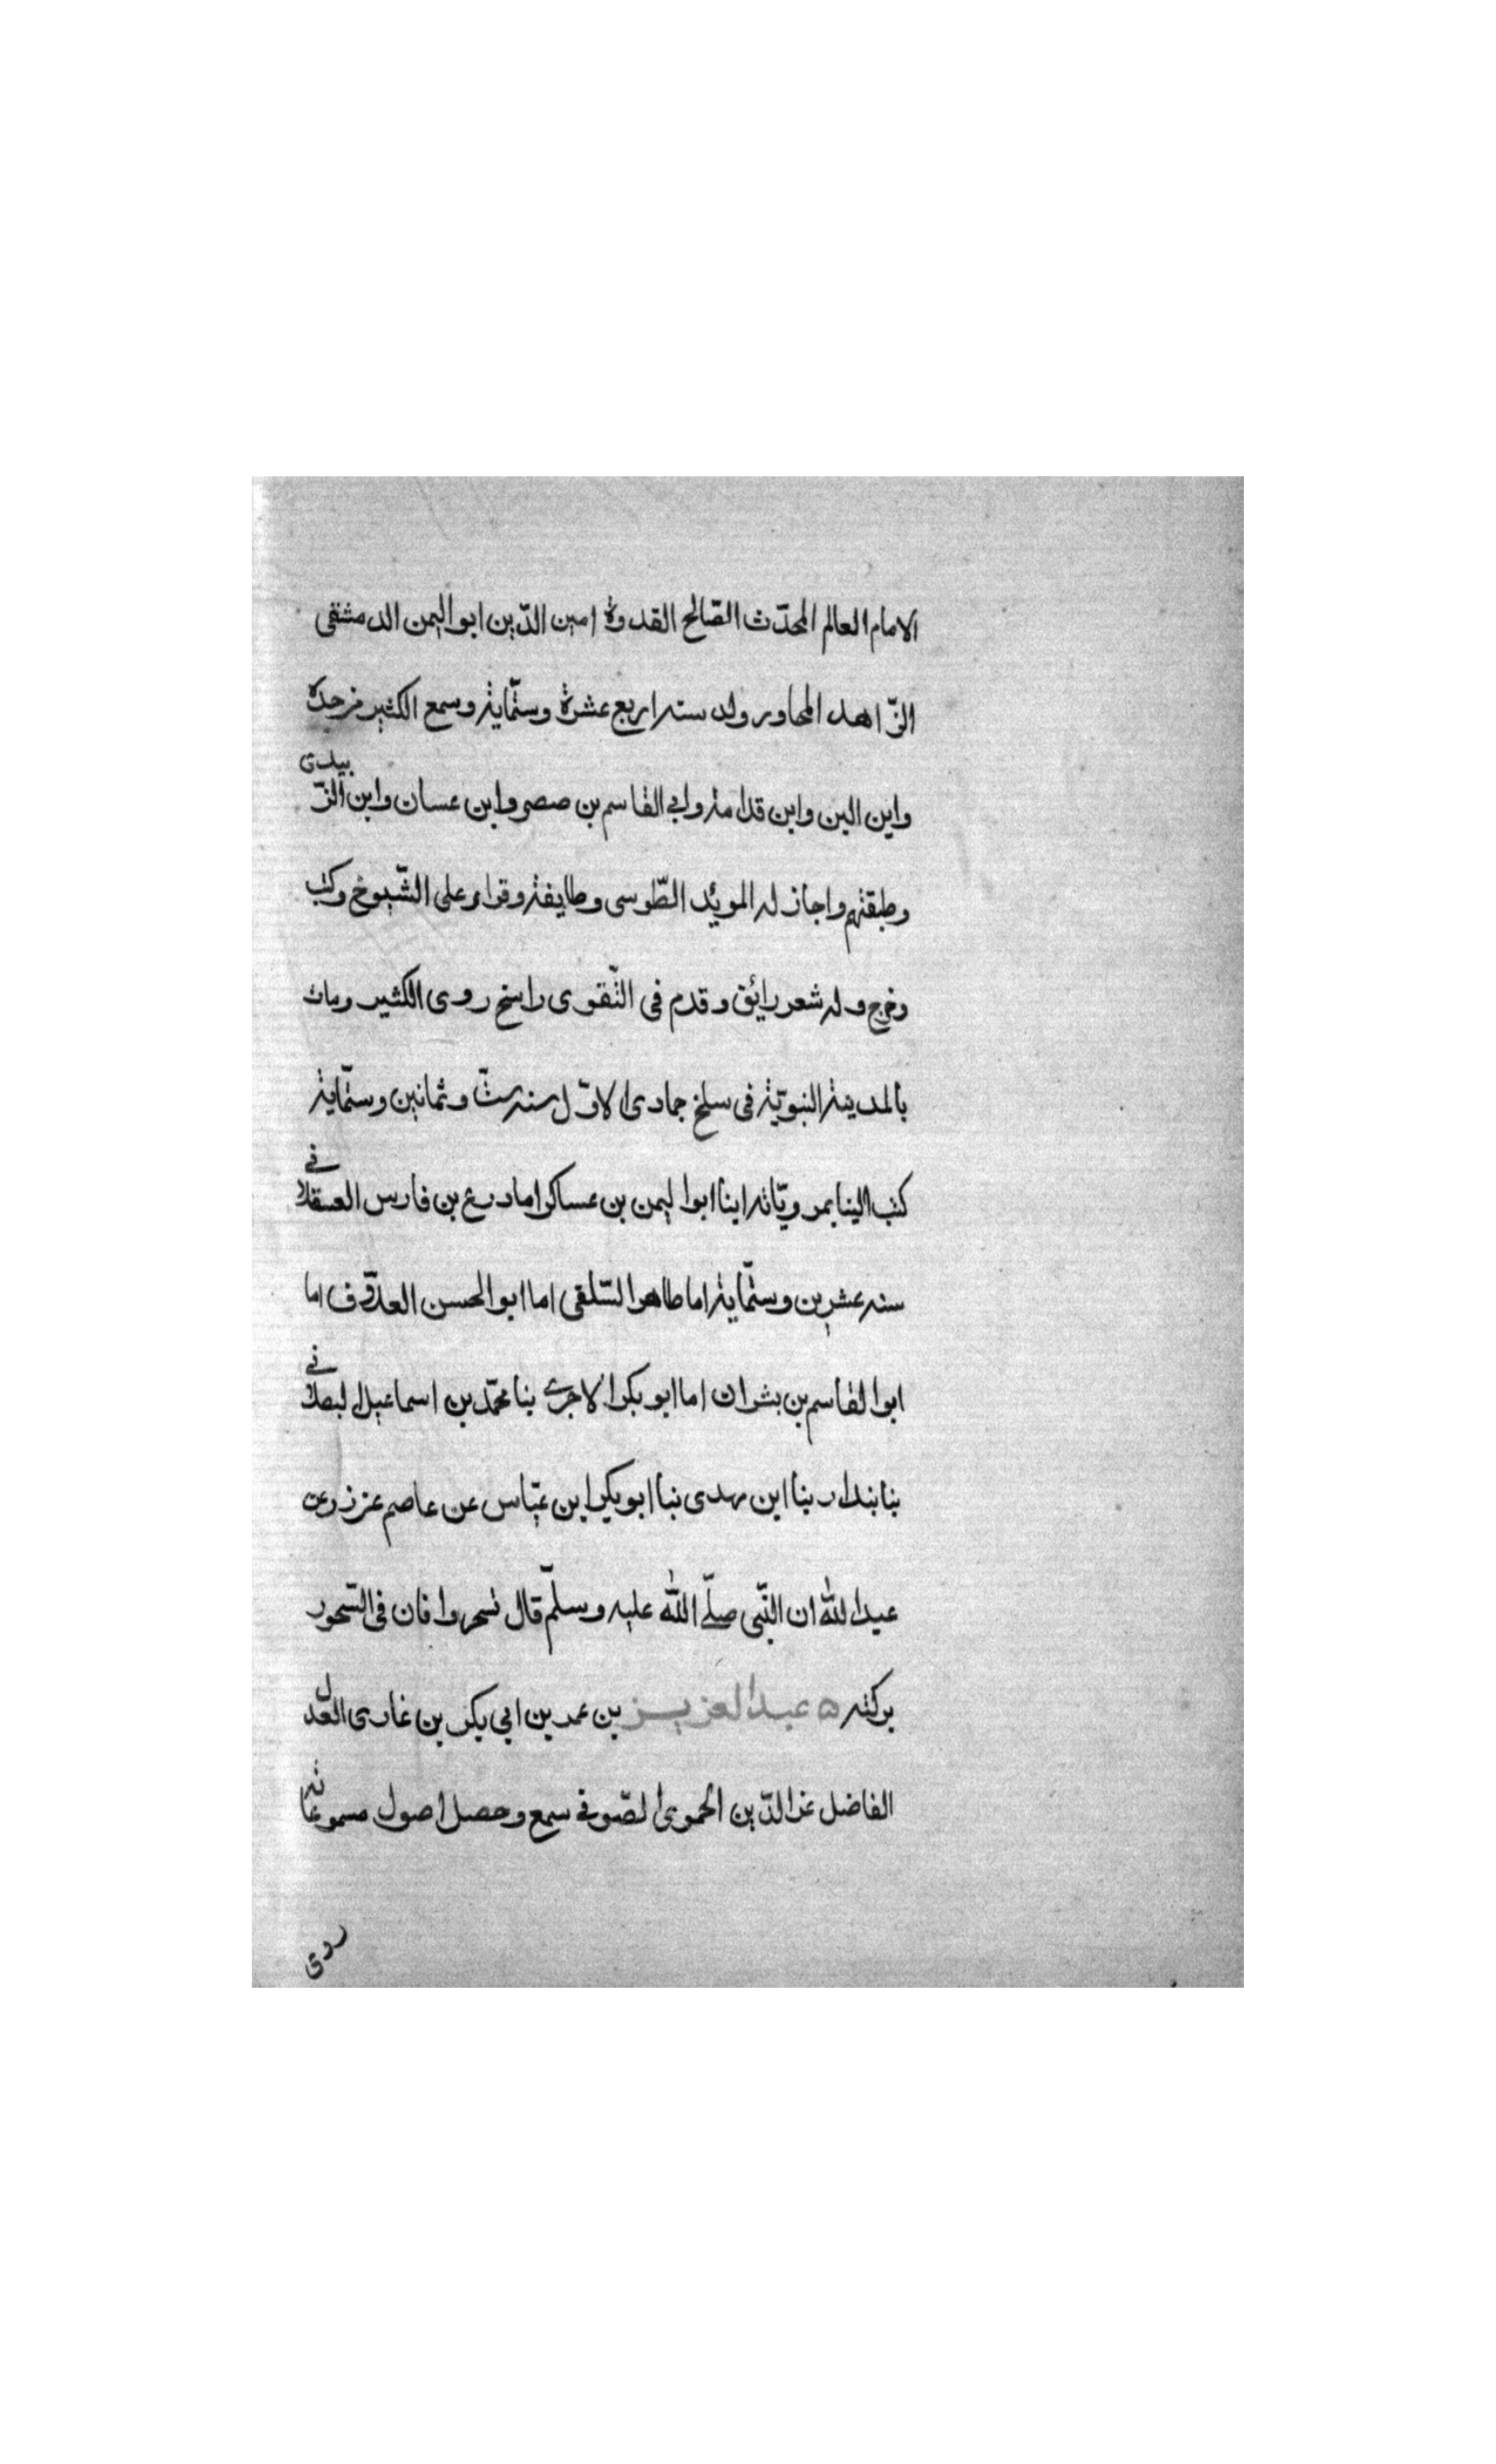 الامام العالم المحدّث الصّالح القدوة امين الدّين ابو اليمن الدمشقى
الزّاهد المجاور ولد سنه اربع عشرة وستّماية وسمع الكثير من جده
وابن البن وابن قدامة وابي القاسم بن صصر وابن عسان وابن الزّبيدى
وطبقتهم واجاز له المويّد الطّوسى وطايفة وقراء على الشّيوخ وكتب
وخرج وله شعر رائق وقدم فى التّقوى راسخ روى الكثير ومات
بالمدينة النبويّة فى سلخ جمادى الاوّل سنه ستّ وثمانين وستّماية
كتب الينا بمرويّاته ابنا ابوا ليمن بن عساكر اما درع بن فارس العسقلانے
سنه عشرين وستّماية اما طاهر السّلفى اما ابو الحسن العلاّف اما
ابوا لقاسم بن بشران اما ابو بكر الاجرے بنا محمّد بن اسماعيل لبصلانے
بنا بندار بنا ابن مهدى نبا ابو بكر ابن عيّاس عن عاصم عن زر عن
عبد الله ان النّبى صلّے الله عليه وسلّم قال تسحروا فان فى السّحور
بركته ه عبد العزيز بن عمر بن ابي بكر بن غارى العدل
الفاضل عز الدّين الحموى الصّوفے سمع وحصل اصول مسموعاته
روى